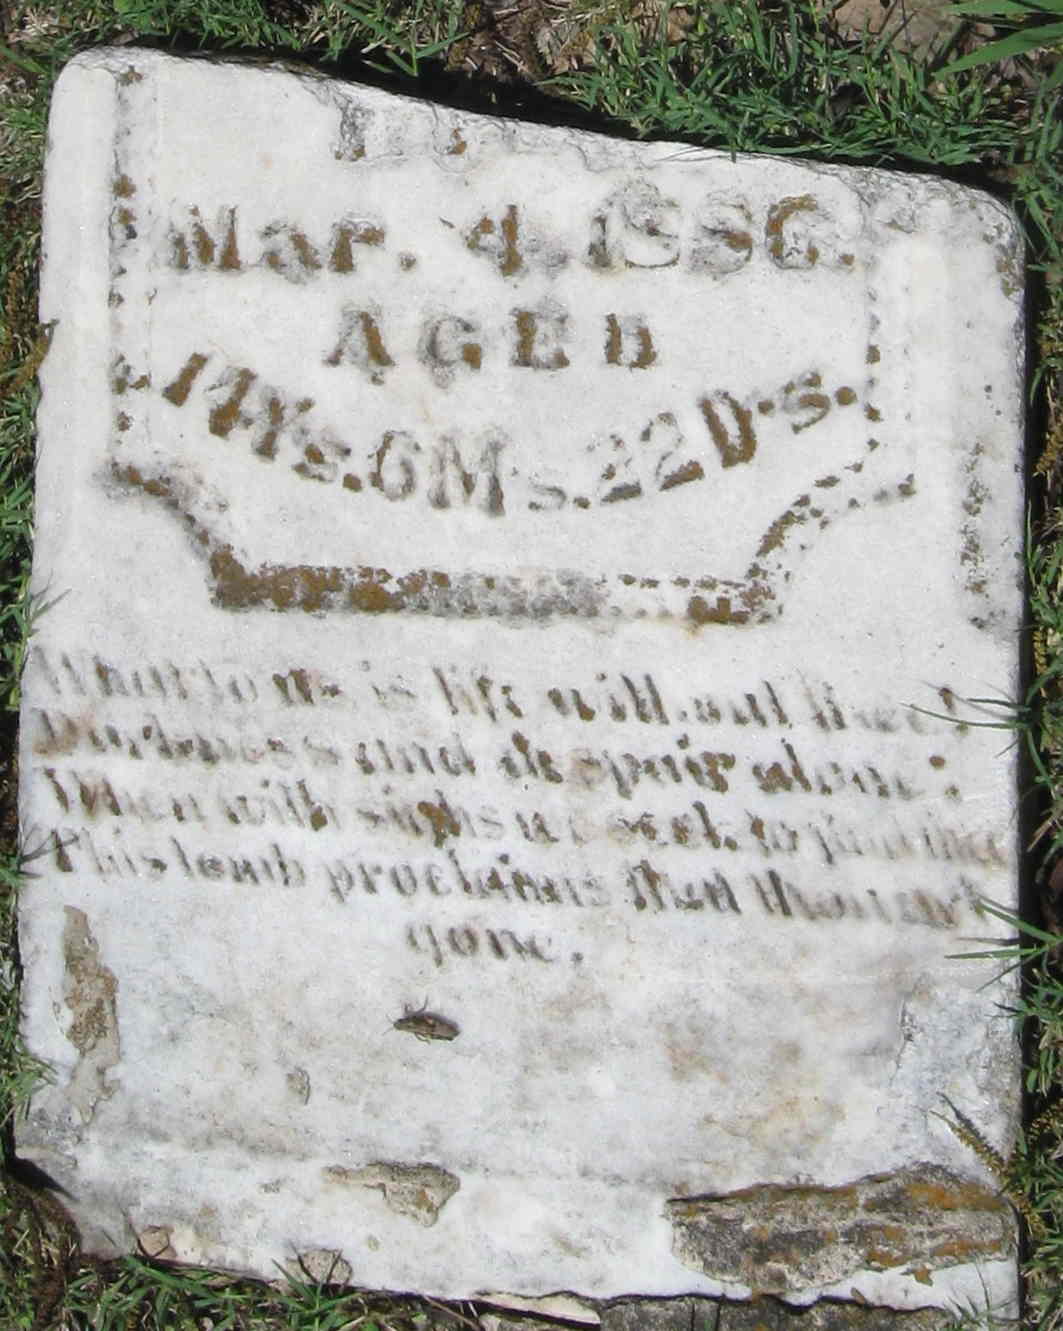 Mar. 4 1886.
AGED
14 Ys. 6 Ms. 22 D.s.
What to us is life without thee!
Darkness and despair alone:
When with sighs we seek to find thee
This tomb proclaims that thou art
gone.